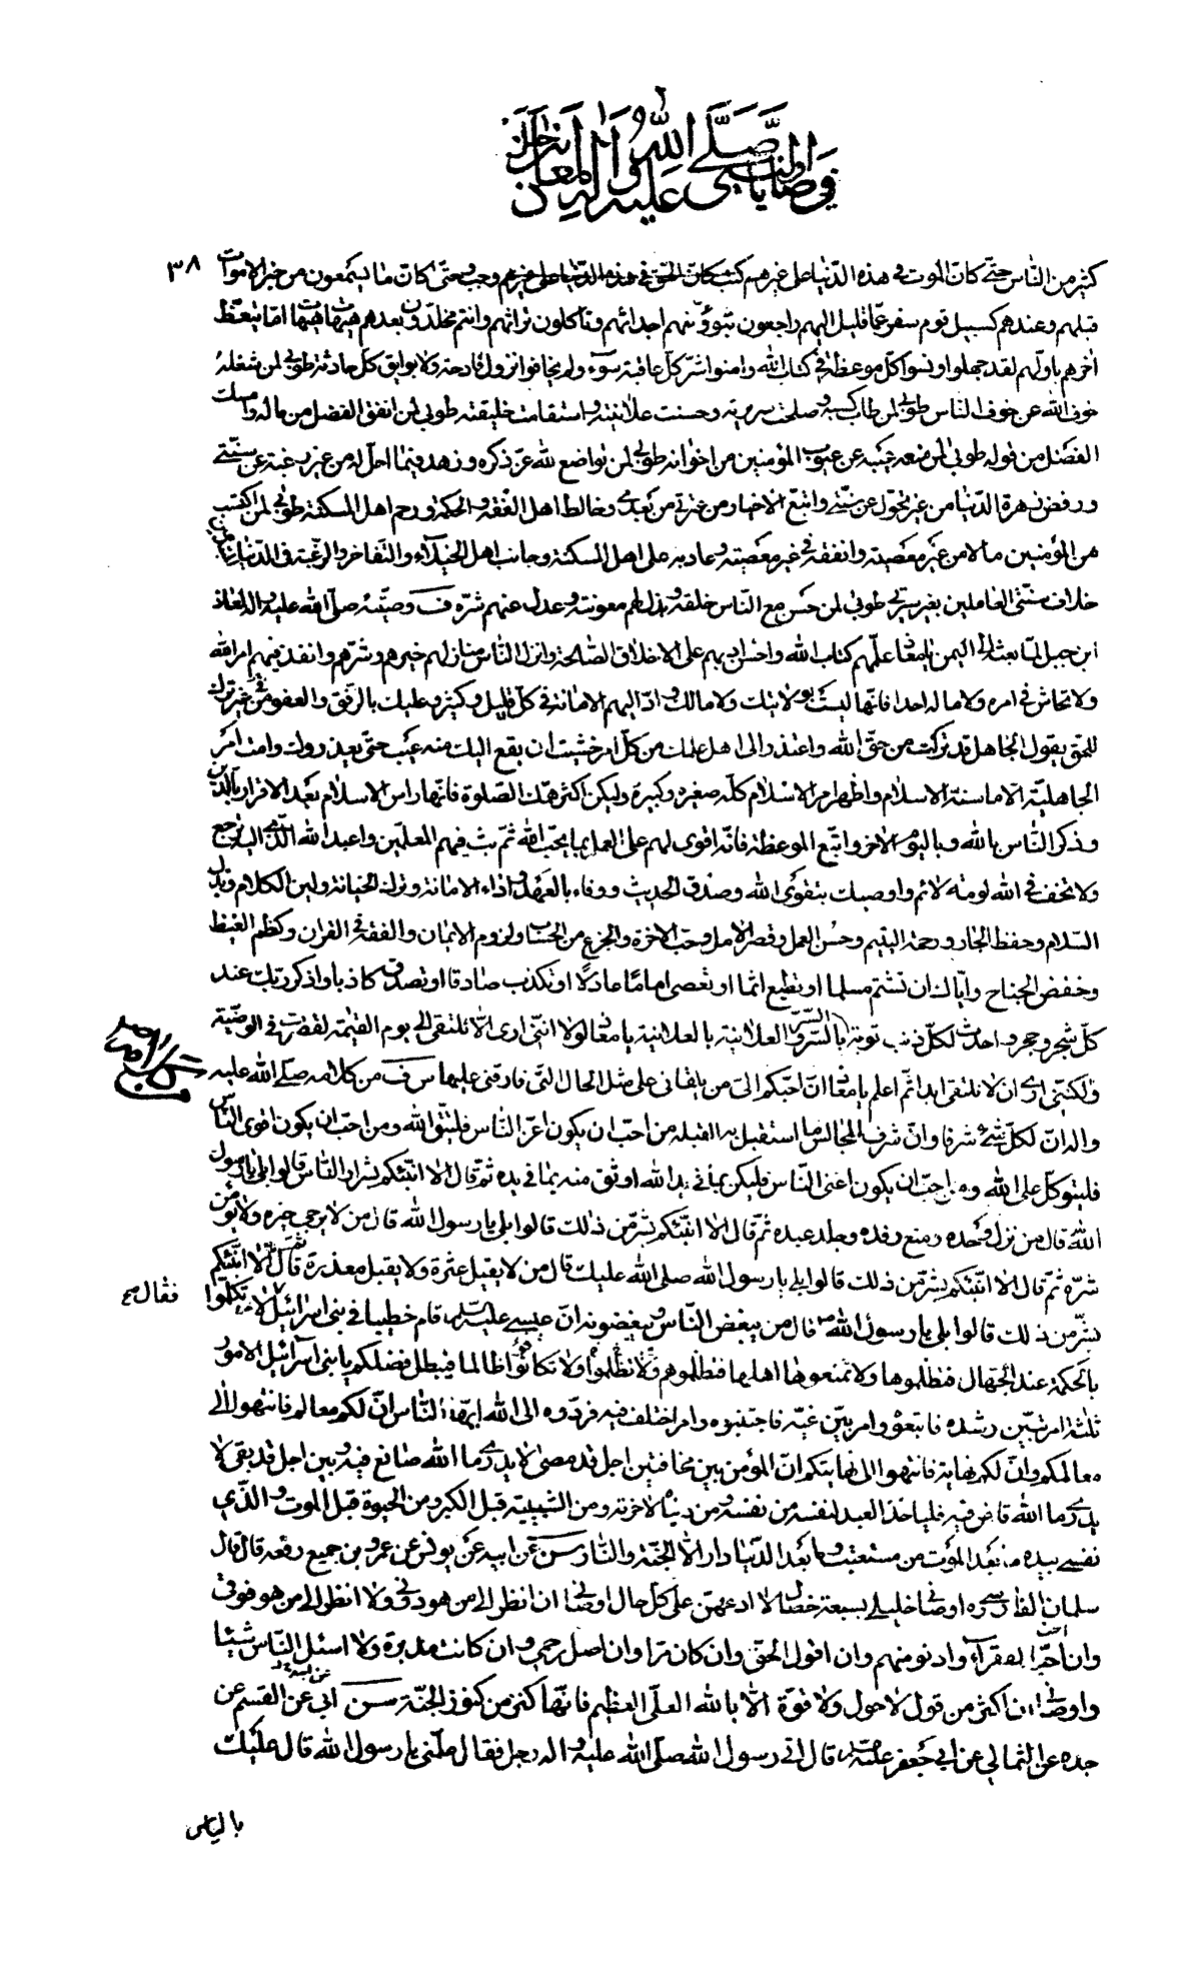 في وصايا النبي صلى الله عليه وآله
٣٨
كثير من الناس حتى كان الموت في هذه الدنيا على غيرهم كتب كان الحق في هذه الدنيا على غيرهم وجب وحتى كان ما يسمعون من خبر الاموات
قبلهم وعندهم كسبيل قوم سفر عما قليل اليهم راجعون تبوؤنهم اجداثهم وتاكلون تراثهم وانتم مخلدون بعدهم هيهات هيهات اما يتعظ
اخرهم باولهم لقد جهلوا ونسوا كل موعظة في كتاب الله وامنوا شر كل عاقبة سوء ولم يخافوا نزول فادحة ولا بوايق كل حادثة طوبى لمن شغله
خوف الله عن خوف الناس طوبى لمن طاب كسبه وصلحت سريرته وحسنت علانيته واستقامت خليقته طوبى لمن انفق الفضل من ماله وامسك
الفضل من قوله طوبى لمن منعه عيبه عن عيوب المؤمنين من اخوانه طوبى لمن تواضع لله عز ذكره وزهد فيما احل له من غير رغبة عن سنتي
ورفض زهرة الدنيا من غير تحول عن سنتي واتبع الاخيار من عترتي من بعدي وخالط اهل الفقه والحكمة ورحم اهل المسكنة طوبى لمن اكتسب
من المؤمنين مالا من غير معصيته وانفقه في غير معصيته وعاد به على اهل المسكنة وجانب اهل الخيلاء والتفاخر والرغبة في الدنيا
خلاف سنتي العاملين بغير سيرتي طوبى لمن حسن مع الناس خلقه وبذل لهم معونته وعدل عنهم شره ف وصيته صلى الله عليه واله لمعاذ
ابن جبل لما بعثه الى اليمن يا معاذ علمهم كتاب الله واحسن ادبهم على الاخلاق الصالحة وانزل الناس منازلهم خيرهم وشرهم وانفذ فيهم امر الله
ولا تحاش في امره ولا ماله احدا فانها ليست بولايتك ولا مالك واد اليهم الامانة في كل قليل وكثير وعليك بالرفق والعفو في غير ترك
للحق يقول الجاهل قد تركت من حق الله واعتذر الى اهل عملك من كل امر خشيت ان يقع اليك منه عيب حتى يعذروك وامت امر
الجاهلية الا ما سنه الاسلام واظهر امر الاسلام كله صغيره وكبيره وليكن اكثر همك الصلوة فانها راس الاسلام بعد الاقرار بالدين
وذكر الناس بالله وباليوم الاخر واتبع الموعظة فانه اقوى لهم على العمل بما يحب الله ثم بث فيهم المعلمين واعبد الله الذي اليه ترجع
ولا تخف في الله لومة لائم واوصيك بتقوى الله وصدق الحديث ووفاء بالعهد واداء الامانة وترك الخيانة ولين الكلام وبذل
السلام وحفظ الجار ورحمة اليتيم وحسن العمل وقصر الامل وحب الاخرة والجزع من الحساب ولزوم الايمان والفقه في القران وكظم الغيظ
وخفض الجناح واياك ان تشتم مسلما او تطيع اثما او تعصي اماما عادلا او تكذب صادقا او تصدق كاذبا واذكر ربك عند
كل شجر وحجر واحدث لكل ذنب توبة السر بالسر والعلانية بالعلانية يا معاذ لولا انني ارى الا نلتقي الى يوم القيمة لقصرت في الوصية
ولكنني ارى ان لا نلتقي ابدا ثم اعلم يا معاذ ان احبكم الي من يلقاني على مثل الحال التي فارقني عليها س ف من كلامه صلى الله عليه
واله ان لكل شئ شرفا وان شرف المجالس ما استقبل به القبلة من احب ان يكون اعز الناس فليتق الله ومن احب ان يكون اقوى الناس
فليتوكل على الله ومن احب ان يكون اغنى الناس فليكن بما في يد الله اوثق منه بما في يده ثم قال الا انبئكم بشرار الناس قالوا بلى يا رسول
الله قال من نزل وحده ومنع رفده وجلد عبده ثم قال الا انبئكم بشر من ذلك قالوا بلى يا رسول الله قال من لا يرجى خيره ولا يؤمن
شره ثم قال الا انبئكم بشر من ذلك قالوا بلى يا رسول الله صلى الله عليك قال من لا يقيل عثرة ولا يقبل معذرة ثم قال الا انبئكم
بشر من ذلك قالوا بلى يا رسول الله قال من يبغض الناس ويبغضونه ان عيسى عليه السلم قام خطيبا في بني اسرائيل لا تكلموا
فقال
بالحكمة عند الجهال فتظلموها ولا تمنعوها اهلها فتظلموهم ولا تظلموا ولا تكافؤا ظالما فيبطل فضلكم يا بني اسرائيل الامور
ثلثة امر تبين رشده فاتبعوه وامر تبين غيه فاجتنبوه وامر اختلف فيه فردوه الى الله ايها الناس ان لكم معالم فانتهوا الى
معالمكم وان لكم نهاية فانتهوا الى نهايتكم ان المؤمن بين مخافتين اجل قد مضى لا يدري ما الله صانع فيه وبين اجل قد بقي لا
يدري ما الله قاض فيه فلياخذ العبد لنفسه من نفسه ومن دنياه لاخرته ومن الشبيبة قبل الكبر ومن الحيوة قبل الموت والذي
نفسي بيده ما بعد الموت من مستعتب وما بعد الدنيا دار الا الجنة والنار سن عن ابيه عن يونس عن عمرو بن جميع رفعه قال قال
سلمان الفارسي ره اوصاني خليلي بسبعة خصال لا ادعهن على كل حال اوصاني ان انظر الى من هو دوني ولا انظر الى من هو فوقي
وان احب الفقراء وادنو منهم وان اقول الحق وان كان مرا وان اصل رحمي وان كانت مدبرة ولا اسئل الناس شيئا
واوصاني ان اكثر من قول لا حول ولا قوة الا بالله العلي العظيم فانها كنز من كنوز الجنة سن ابي عن القسم عن
جده عن الثمالي عن ابي جعفر عليه السلم قال اتى رسول الله صلى الله عليه واله رجل فقال علمني يا رسول الله قال عليك
بالياس